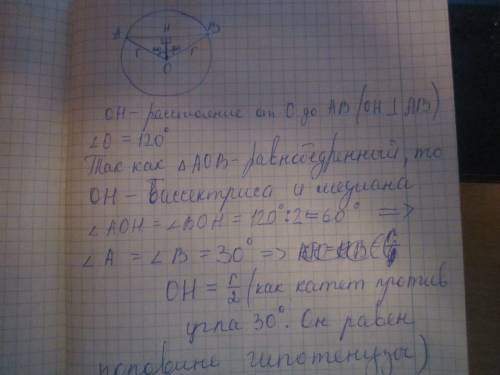 A H B
r r
O
OH - расстояние от O до AB (OH ⊥ AB)
∠O = 120°
Так как △AOB - равнобедренный, то
OH - биссектриса и медиана
∠AOH = ∠BOH = 120° : 2 = 60° =>
∠A = ∠B = 30° =>
OH = r/2 (как катет против
угла 30°. Он равен
половине гипотенузы)